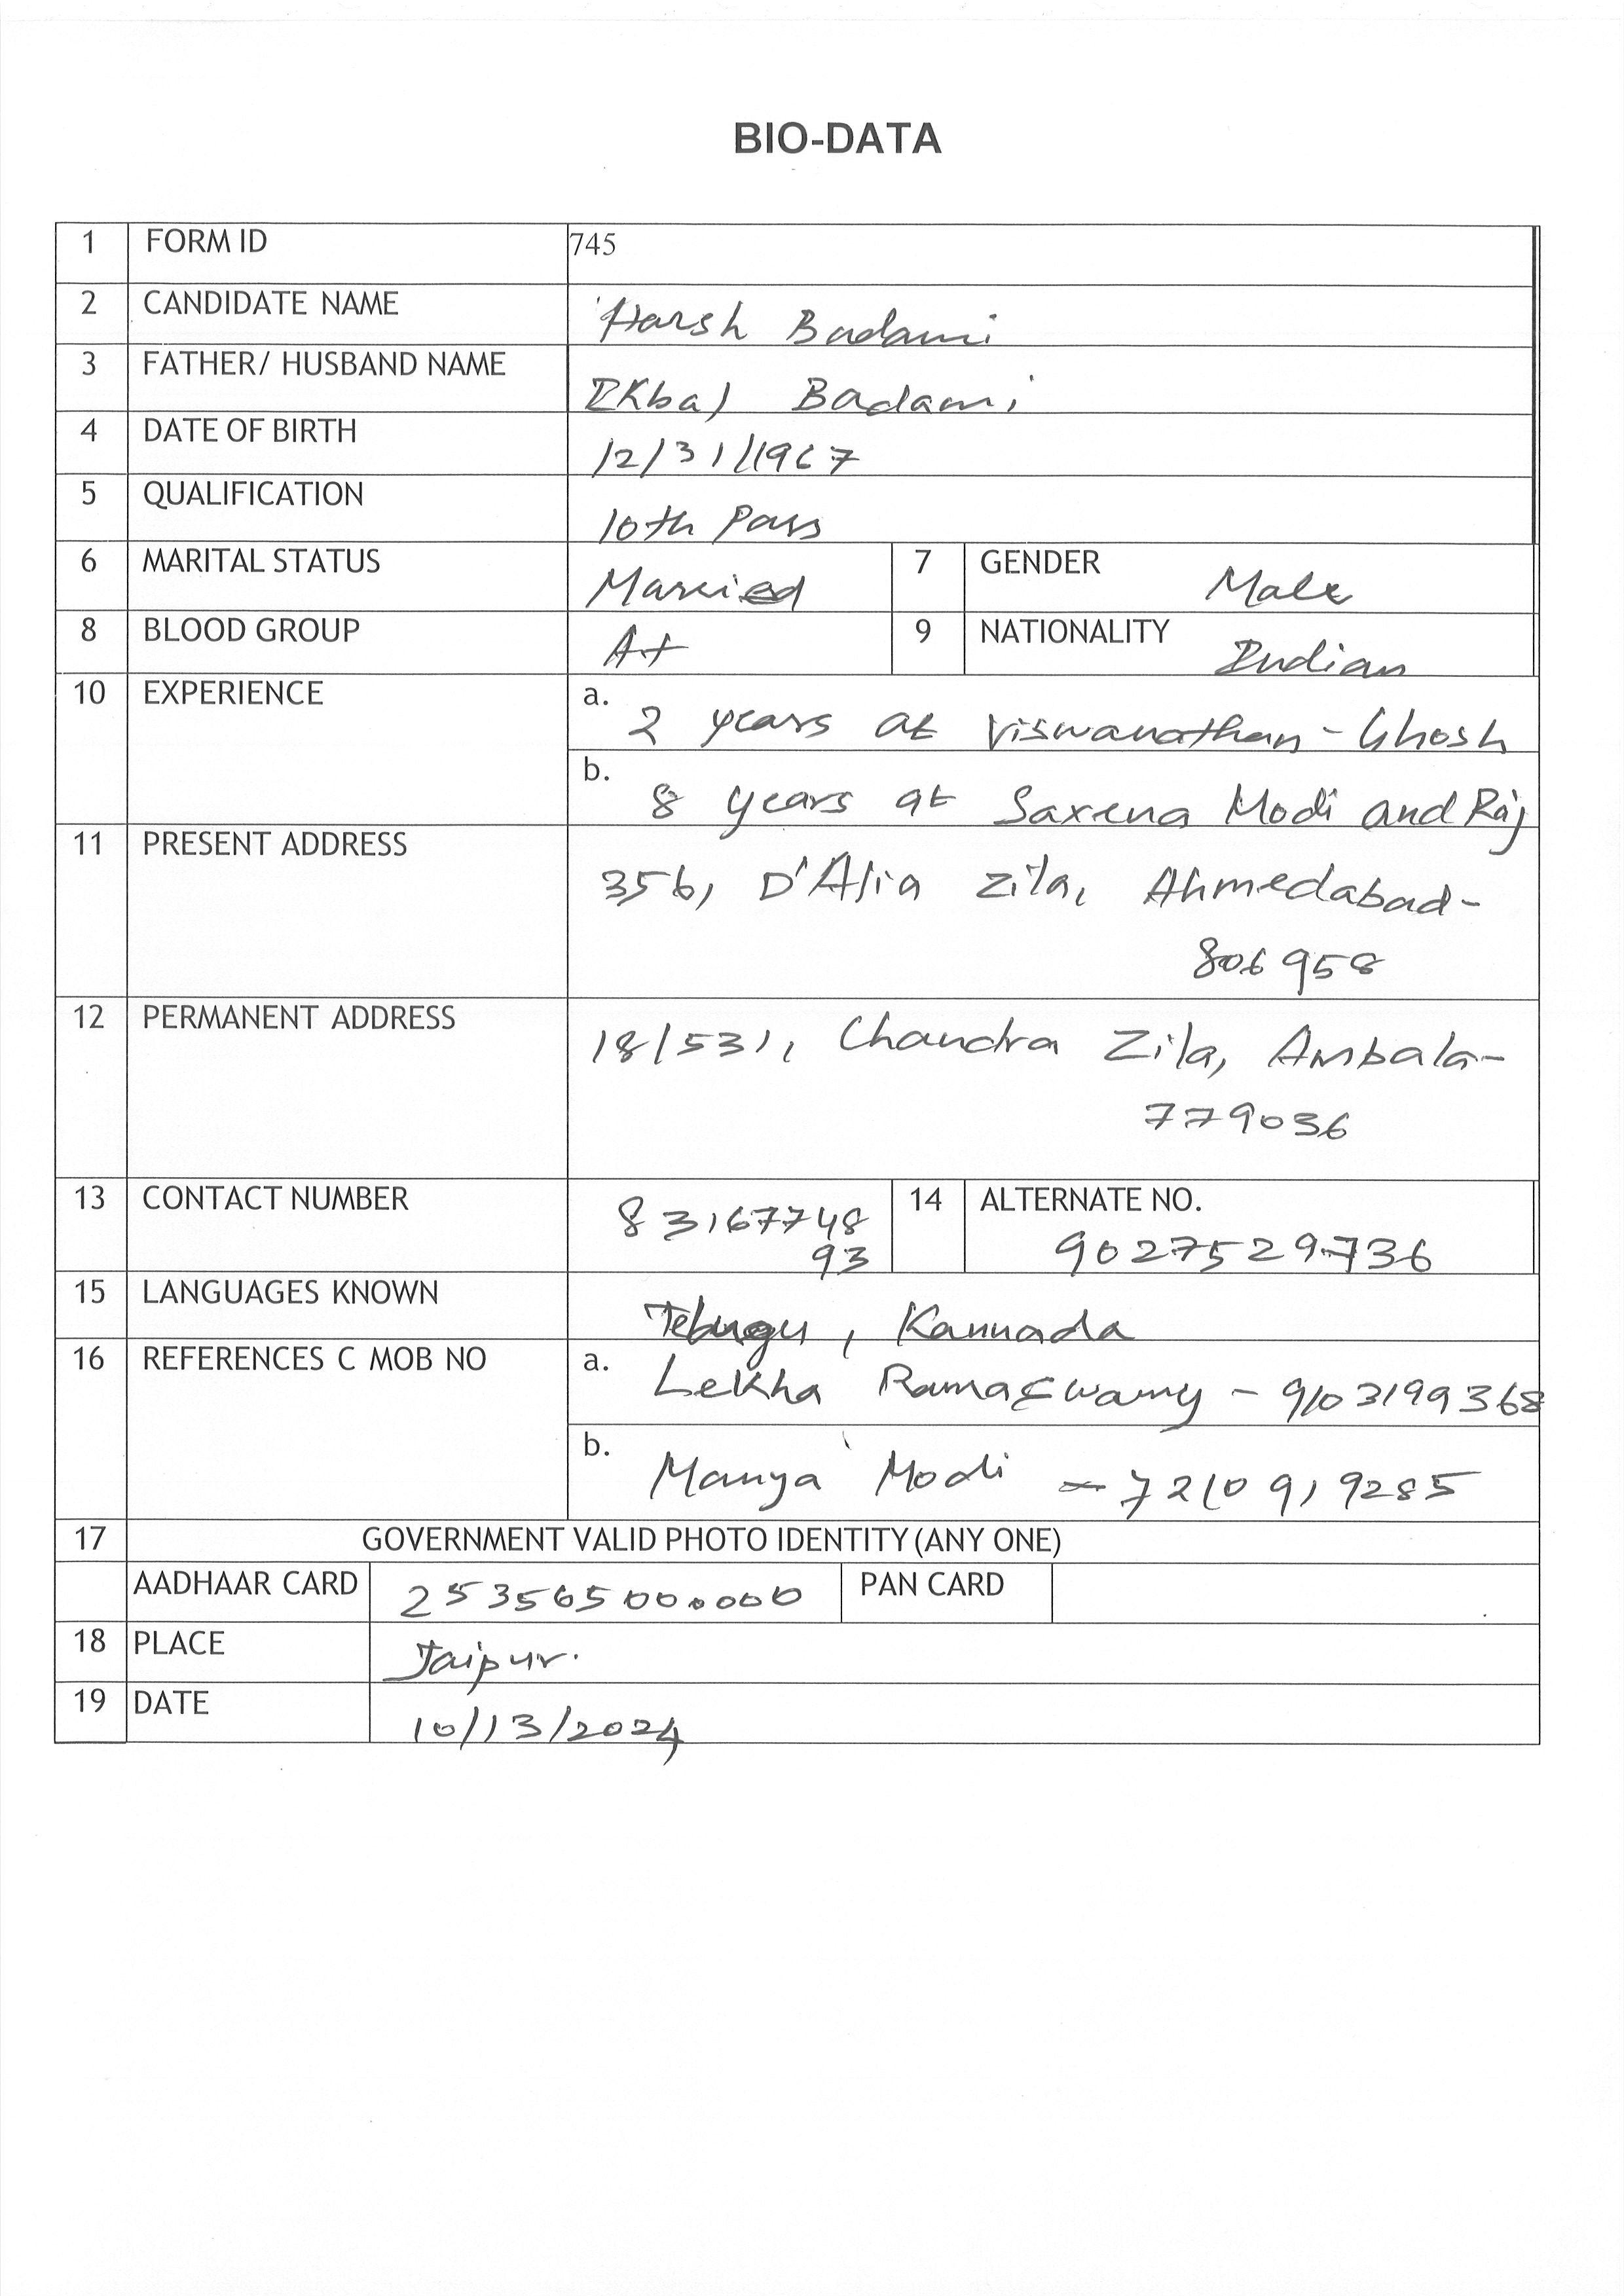 BIO-DATA
1 FORM ID 745
2 CANDIDATE NAME Harsh Badami
3 FATHER/ HUSBAND NAME Ikbal Badami
4 DATE OF BIRTH 12/31/1967
5 QUALIFICATION 10th Pass
6 MARITAL STATUS Married 7 GENDER Male
8 BLOOD GROUP A+ 9 NATIONALITY Indian
10 EXPERIENCE a. 2 years at Viswanathan-Ghosh
b. 8 years at Saxena Modi and Raj
11 PRESENT ADDRESS 356, D'Alia Zila, Ahmedabad-
806958
12 PERMANENT ADDRESS 18/531, Chandra Zila, Ambala-
779036
13 CONTACT NUMBER 83167748 14 ALTERNATE NO.
93 9027529736
15 LANGUAGES KNOWN Telugu, Kannada
16 REFERENCES C MOB NO a. Lekha Ramaswamy - 9103199368
b. Manya Modi - 7210919285
17 GOVERNMENT VALID PHOTO IDENTITY (ANY ONE)
AADHAAR CARD 253565000000 PAN CARD
18 PLACE Jaipur.
19 DATE 10/13/2024